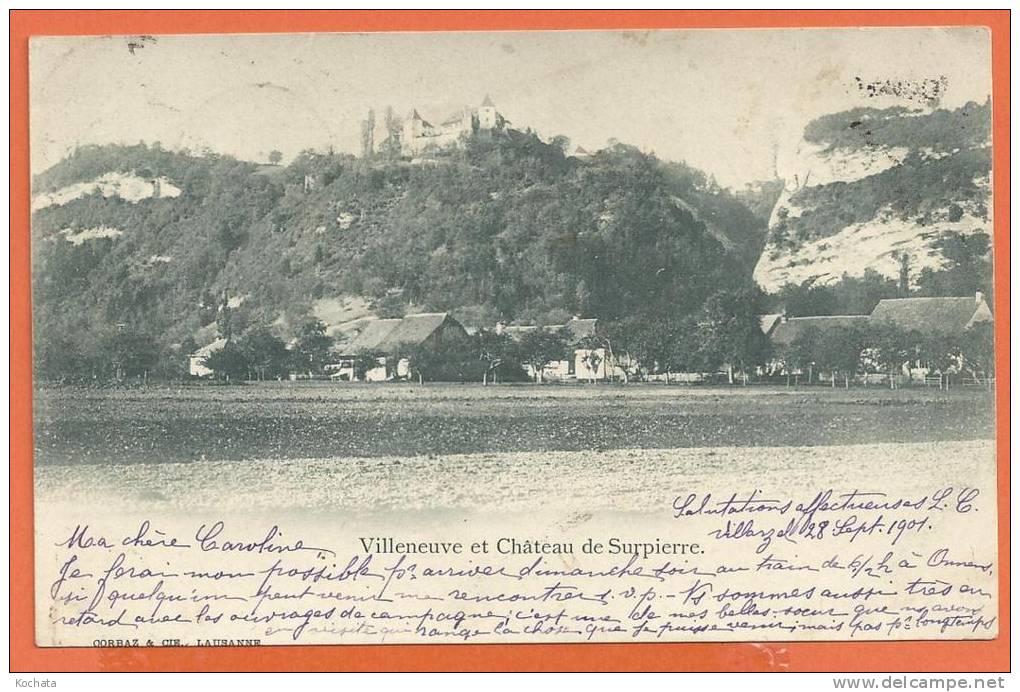 Salutations affectueuses L. C.
Villarzel 28 Sept. 1901.
Ma chère Caroline
Villeneuve et Château de Surpierre.
Je ferai mon possible pr. arriver dimanche soir au train de 6½ h à Onnens,
si quelqu'un peut venir me rencontrer s.v.p. - Ns sommes aussi très en
retard avec les ouvrages de campagne; c'est une de mes belles-sœur que ns avons
en visite qui range la chose que je puisse venir, mais pas pr. longtemps
CORBAZ & CIE., LAUSANNE
Kochata
www.delcampe.net